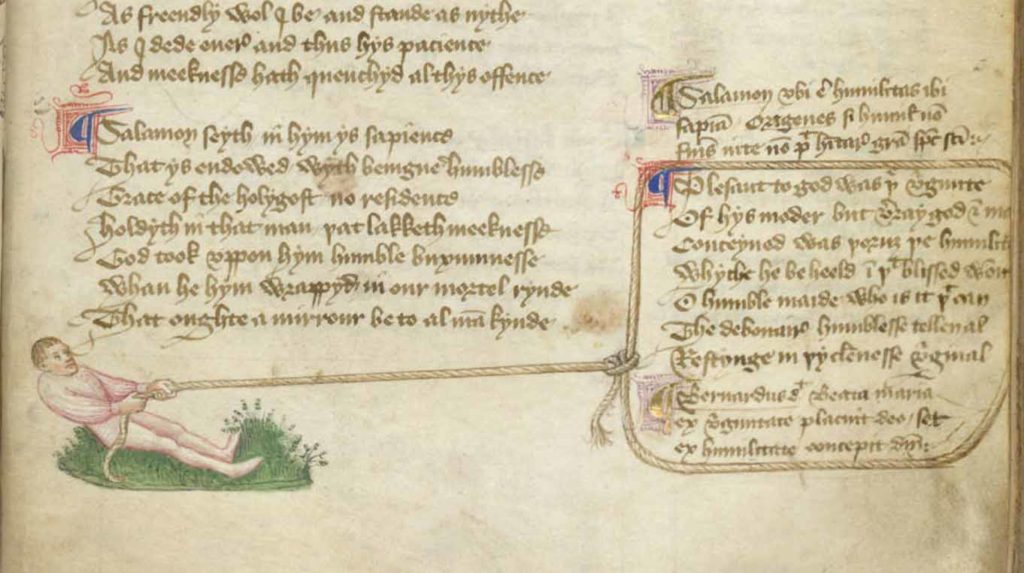 As freendly wol I be and stande as nythe
As I dede ever and thus hys pacience
And meeknesse hath quenchyd al thys offence
Salamon seyth in hym ys sapience
That ys endewed wyth benigne humblesse
Grace of the holygost no residence
Holdyth in that man þat lakketh meeknesse
God took uppon hym humble buxumnesse
Whan he hym wrappyd in our mortel rynde
That oughte a mirrour be to al mākynde
Salamon vbi ē humilitas ibi
sapīa Origenes si humil nō
fuis
Plesant to god was þe
Of hys moder but god
Conceyued was þe
Whyche he beheeld ī þt blissed
O humble maide who is it þt can
The debonair humblesse tellen al
Restynge in þy clēnesse
Bernardus Beata maria
ex placuit deo set
ex humilitate concepit